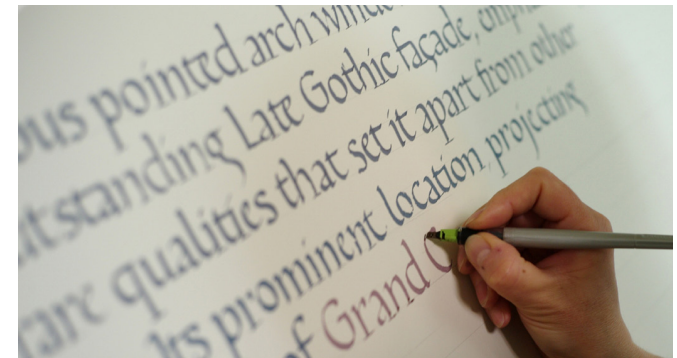 ous pointed arch windo
utstanding Late Gothic façade, empha
rare qualities that set it apart from other
Its prominent location, projecting
of Grand C